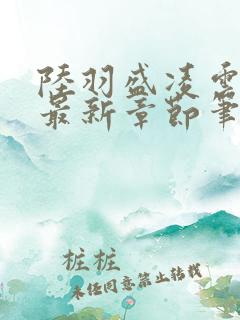 陸羽盛凌雲
最新章節筆
桩桩
未经同意禁止转载